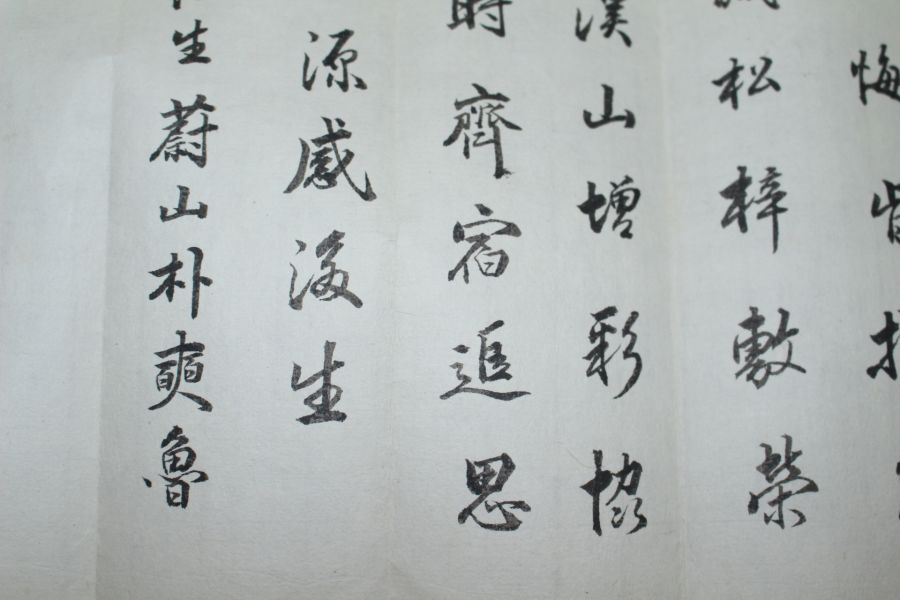 悔皆
松梓敷榮
山增彩恊
時齊宿追思
源感後生
生蔚山朴奭魯